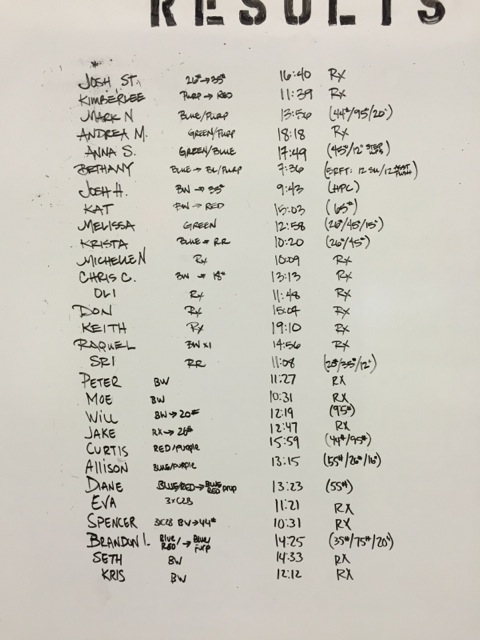 RESULTS
JOSH ST. 26#→35# 16:40 RX
KIMBERLEE PURP → RED 11:39 RX
MARK N BLUE/PURP 13:56 (44#/95/20")
ANDREA M. GREEN/PURP 18:18 RX
ANNA S. GREEN/BLUE 17:49 (45#/12" STEP UPS)
BETHANY BLUE → BL/PURP 7:36
JOSH H. BW → 35# 9:43 (HPC)
KAT BW → RED 15:03 (65#)
MELISSA GREEN 12:58 (26#/45/15")
KRISTA BLUE → RR 10:20 (26#/45#)
MICHELLE N RX 10:09 RX
CHRIS C. BW → 18# 13:13 RX
OLI RX 11:48 RX
DON RX 15:04 RX
KEITH RX 19:10 RX
RAQUEL BW X1 14:56 RX
SRI RR 11:08 (26#/35#/12")
PETER BW 11:27 RX
MOE BW 10:31 RX
WILL BW→20# 12:19 (95#)
JAKE RX→26# 12:47 RX
CURTIS RED/PURPLE 15:59 (44#/95#)
ALLISON BLUE/PURPLE 13:15 (55#/26#/16")
DIANE BLUE/RED→BLUE RED PURP 13:23 (55#)
EVA 3XC2B 11:21 RX
SPENCER 3XC2B BW→44# 10:31 RX
BRANDON L. BLUE/RED/→BLUE/PURP 14:25 (35#/75#/20")
SETH BW 14:33 RX
KRIS BW 12:12 RX